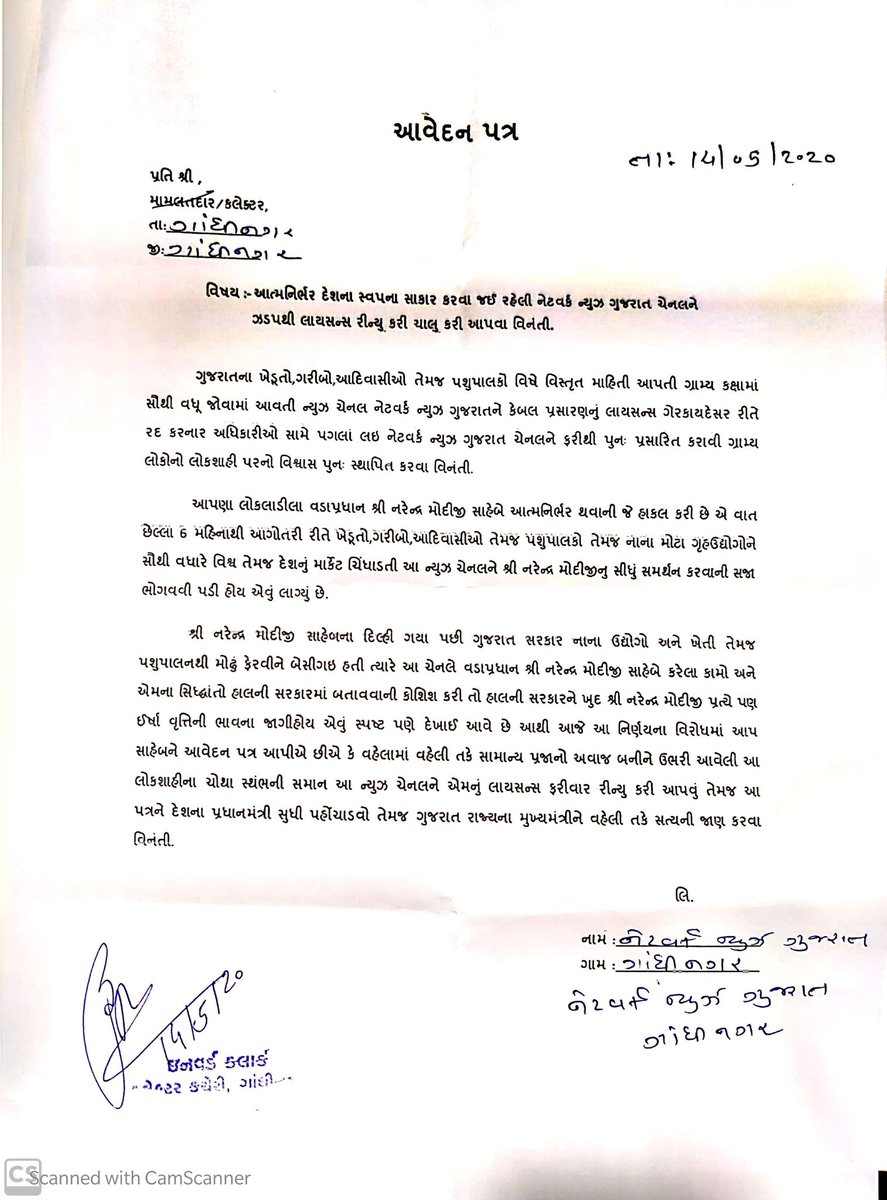 આવેદન પત્ર
તા: 14/05/2020
પ્રતિ શ્રી,
મામલતદાર/કલેક્ટર,
તા: ગાંધીનગર
જી: ગાંધીનગર
વિષય :- આત્મનિર્ભર દેશના સ્વપના સાકાર કરવા જઈ રહેલી નેટવર્ક ન્યુઝ ગુજરાત ચેનલને
ઝડપથી લાયસન્સ રીન્યુ કરી ચાલુ કરી આપવા વિનંતી.
ગુજરાતના ખેડૂતો,ગરીબો,આદિવાસીઓ તેમજ પશુપાલકો વિષે વિસ્તૃત માહિતી આપતી ગ્રામ્ય કક્ષામાં
સૌથી વધૂ જોવામાં આવતી ન્યુઝ ચેનલ નેટવર્ક ન્યુઝ ગુજરાતને કેબલ પ્રસારણનું લાયસન્સ ગેરકાયદેસર રીતે
રદ કરનાર અધિકારીઓ સામે પગલાં લઇ નેટવર્ક ન્યુઝ ગુજરાત ચેનલને ફરીથી પુનઃ પ્રસારિત કરાવી ગ્રામ્ય
લોકોનો લોકશાહી પરનો વિશ્વાસ પુનઃ સ્થાપિત કરવા વિનંતી.
આપણા લોકલાડીલા વડાપ્રધાન શ્રી નરેન્દ્ર મોદીજી સાહેબે આત્મનિર્ભર થવાની જે હાકલ કરી છે એ વાત
છેલ્લા 6 મહિનાથી આગોતરી રીતે ખેડૂતો,ગરીબો,આદિવાસીઓ તેમજ પશુપાલકો તેમજ નાના મોટા ગૃહઉદ્યોગોને
સૌથી વધારે વિશ્વ તેમજ દેશનું માર્કેટ ચિંધાડતી આ ન્યુઝ ચેનલને શ્રી નરેન્દ્ર મોદીજીનુ સીધું સમર્થન કરવાની સજા
ભોગવવી પડી હોય એવું લાગ્યું છે.
શ્રી નરેન્દ્ર મોદીજી સાહેબના દિલ્હી ગયા પછી ગુજરાત સરકાર નાના ઉદ્યોગો અને ખેતી તેમજ
પશુપાલનથી મોઢું ફેરવીને બેસીગઇ હતી ત્યારે આ ચેનલે વડાપ્રધાન શ્રી નરેન્દ્ર મોદીજી સાહેબે કરેલા કામો અને
એમના સિધ્ધાંતો હાલની સરકારમાં બતાવવાની કોશિશ કરી તો હાલની સરકારને ખુદ શ્રી નરેન્દ્ર મોદીજી પ્રત્યે પણ
ઈર્ષા વૃત્તિની ભાવના જાગીહોય એવું સ્પષ્ટ પણે દેખાઈ આવે છે આથી આજે આ નિર્ણયના વિરોધમાં આપ
સાહેબને આવેદન પત્ર આપીએ છીએ કે વહેલામાં વહેલી તકે સામાન્ય પ્રજાનો અવાજ બનીને ઉભરી આવેલી આ
લોકશાહીના ચોથા સ્થંભની સમાન આ ન્યુઝ ચેનલને એમનું લાયસન્સ ફરીવાર રીન્યુ કરી આપવું તેમજ આ
પત્રને દેશના પ્રધાનમંત્રી સુધી પહોંચાડવો તેમજ ગુજરાત રાજ્યના મુખ્યમંત્રીને વહેલી તકે સત્યની જાણ કરવા
વિનંતી.
લિ.
નામ : નેટવર્ક ન્યુઝ ગુજરાત
ગામ : ગાંધીનગર
નેટવર્ક ન્યુઝ ગુજરાત
ગાંધીનગર
14/5/20
ઇનવર્ડ કલાર્ક
કચેરી, ગાંધી
CS Scanned with CamScanner